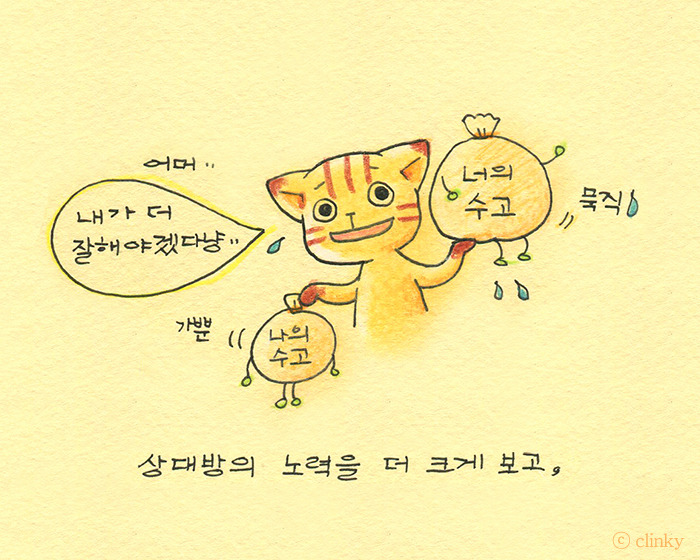 어머..
내가 더
잘해야겠다냥..
너의
수고
묵직
가뿐
나의
수고
상대방의 노력을 더 크게 보고,
ⓒ clinky